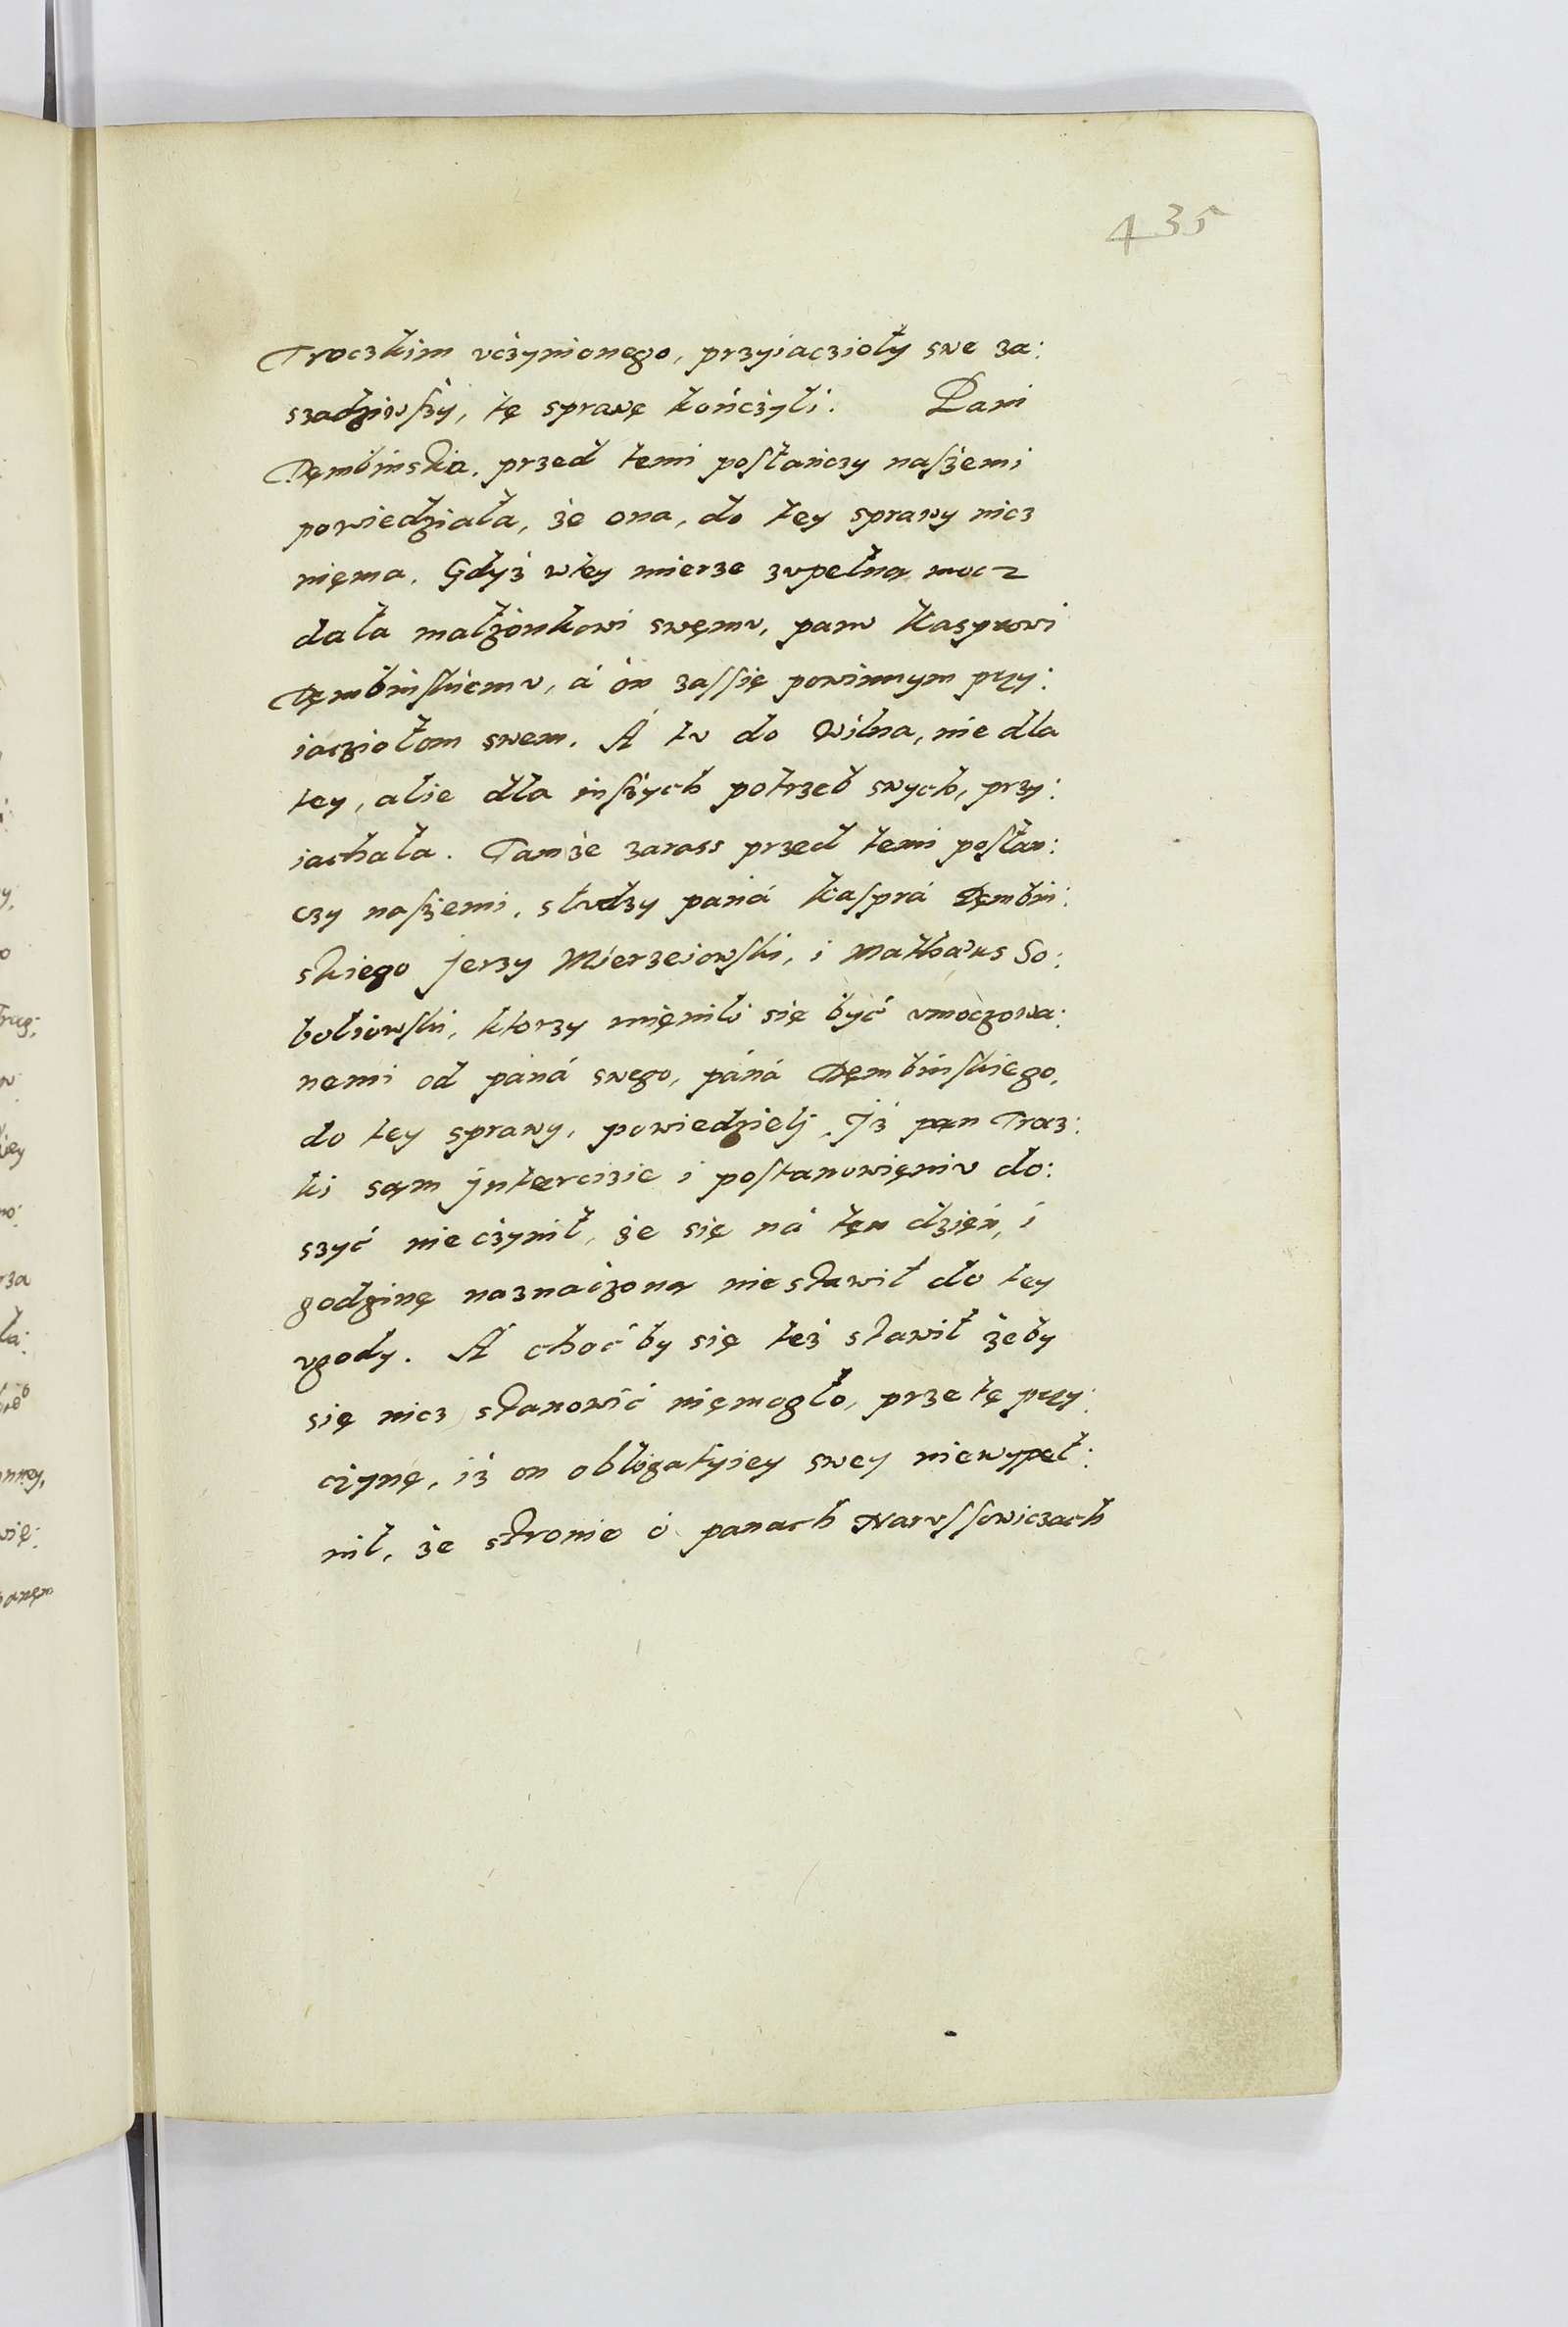 435
Troczkim vczynionego, przyiaczioły swe za:
szadziwſzy, tę sprawę kończyli. Pani
Dęmbinska, przed temi poſłańczy naſzemi
powiedziała, że ona, do tey sprawy nicz
nięma. Gdyż wtey mierze zvpełną mocz
dała małżonkowi swęmv, panv Kasprowi
Dęmbinſkiemv, á ón zaſſię powinnym przy:
iacziołom swem. A tv do Wilna, nie dla
tey, alie dla inſzych potrzeb swych, przy:
iachała. Tamże zarass przed temi poſłan:
czy naſzemi, słvdzy páná Kaſprá Dęmbin:
skiego Jerzy Mierzeiowſki, i Mathæus So:
boliowſki, ktorzy mięnili się być vmoczowa:
nemi od páná swego, páná Dęmbinſkiego,
do tey sprawy, powiedzielj, Jż pan Trocz:
ki sąm jntercizie i poſtanowięniv do:
szyć nie czynił, że się ná tęn dzięń, i
godzinę naznaczoną nie stawił do tey
vgody. A choć by się też stawił żeby
się nicz stanowić nięmogło, prze tę przy:
czynę, iż on obligatyiey swey niewypeł:
nił, że stronie ó panach Narvſſowiczach